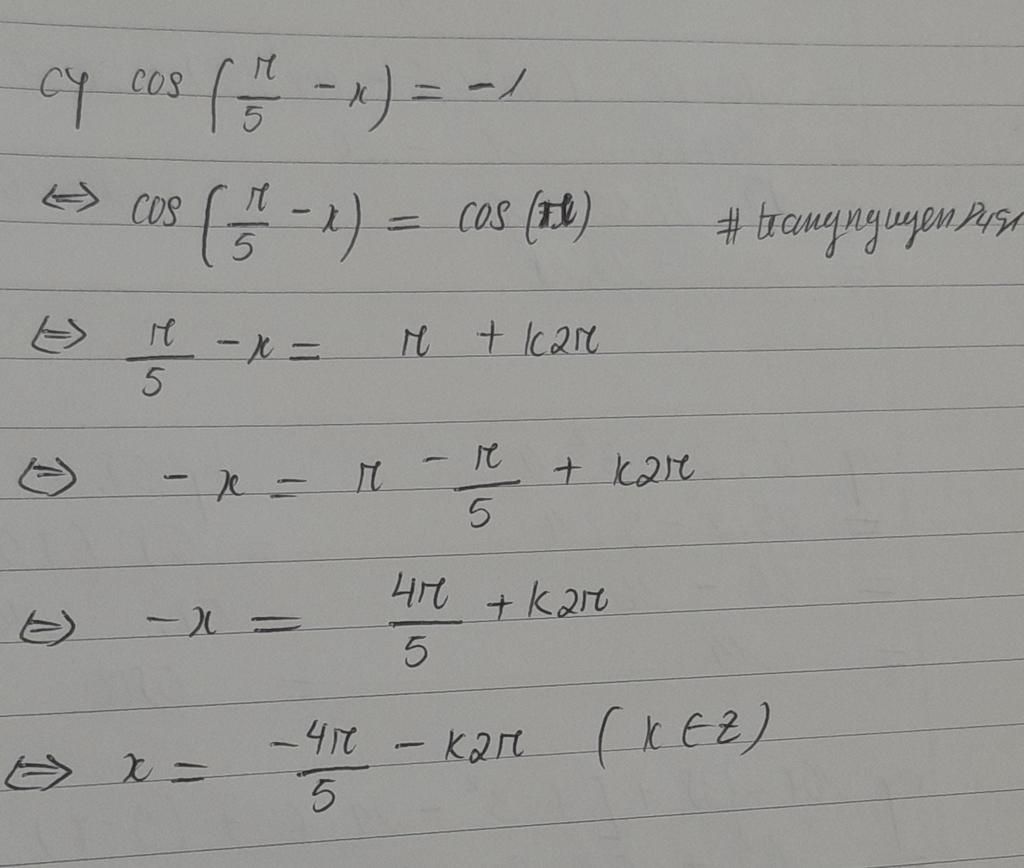 c) cos (π/5 - x) = -1
⇔ cos (π/5 - x) = cos (π)
⇔ π/5 - x = π + k2π
⇔ - x = π - π/5 + k2π
⇔ -x = 4π/5 + k2π
⇔ x = -4π/5 - k2π (k ∈ Z)